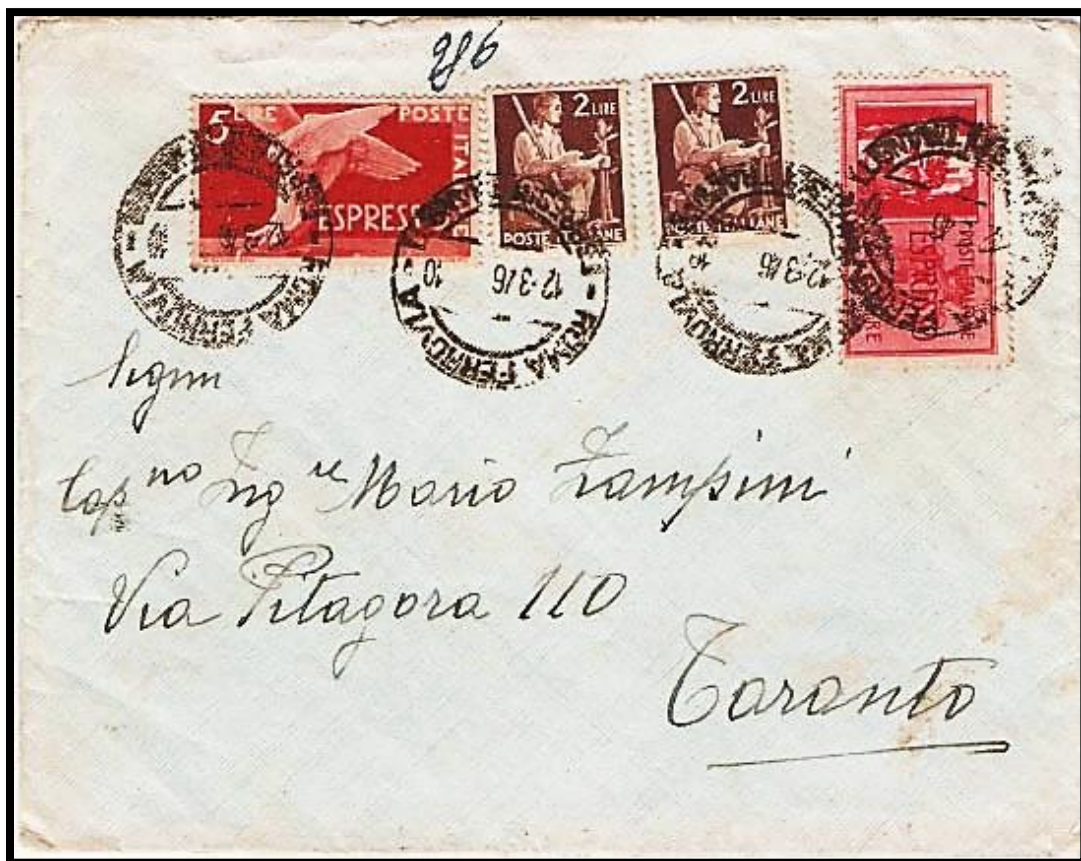 296
5 LIRE POSTE ITALIANE
ESPRESSO
2 LIRE
POSTE ITALIANE
2 LIRE
POSTE ITALIANE
POSTE ITALIANE
ESPRESSO
LIRE
ROMA FERROVIA
12·3·46
10
ROMA FERROVIA
12·3·46
10
ROMA FERROVIA
12·3·46
10
Cap.no Ing.re Mario Zampini
Via Pitagora 110
Taranto